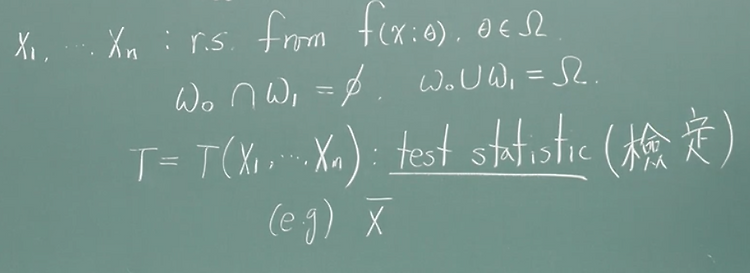 X₁, ... Xₙ : r.s. from f(x:θ). θ∈Ω.
ω₀ ∩ ω₁ = ∅. ω₀∪ω₁ = Ω.
T = T(X₁, ... Xₙ) : test statistic (檢定)
(e.g) X̄